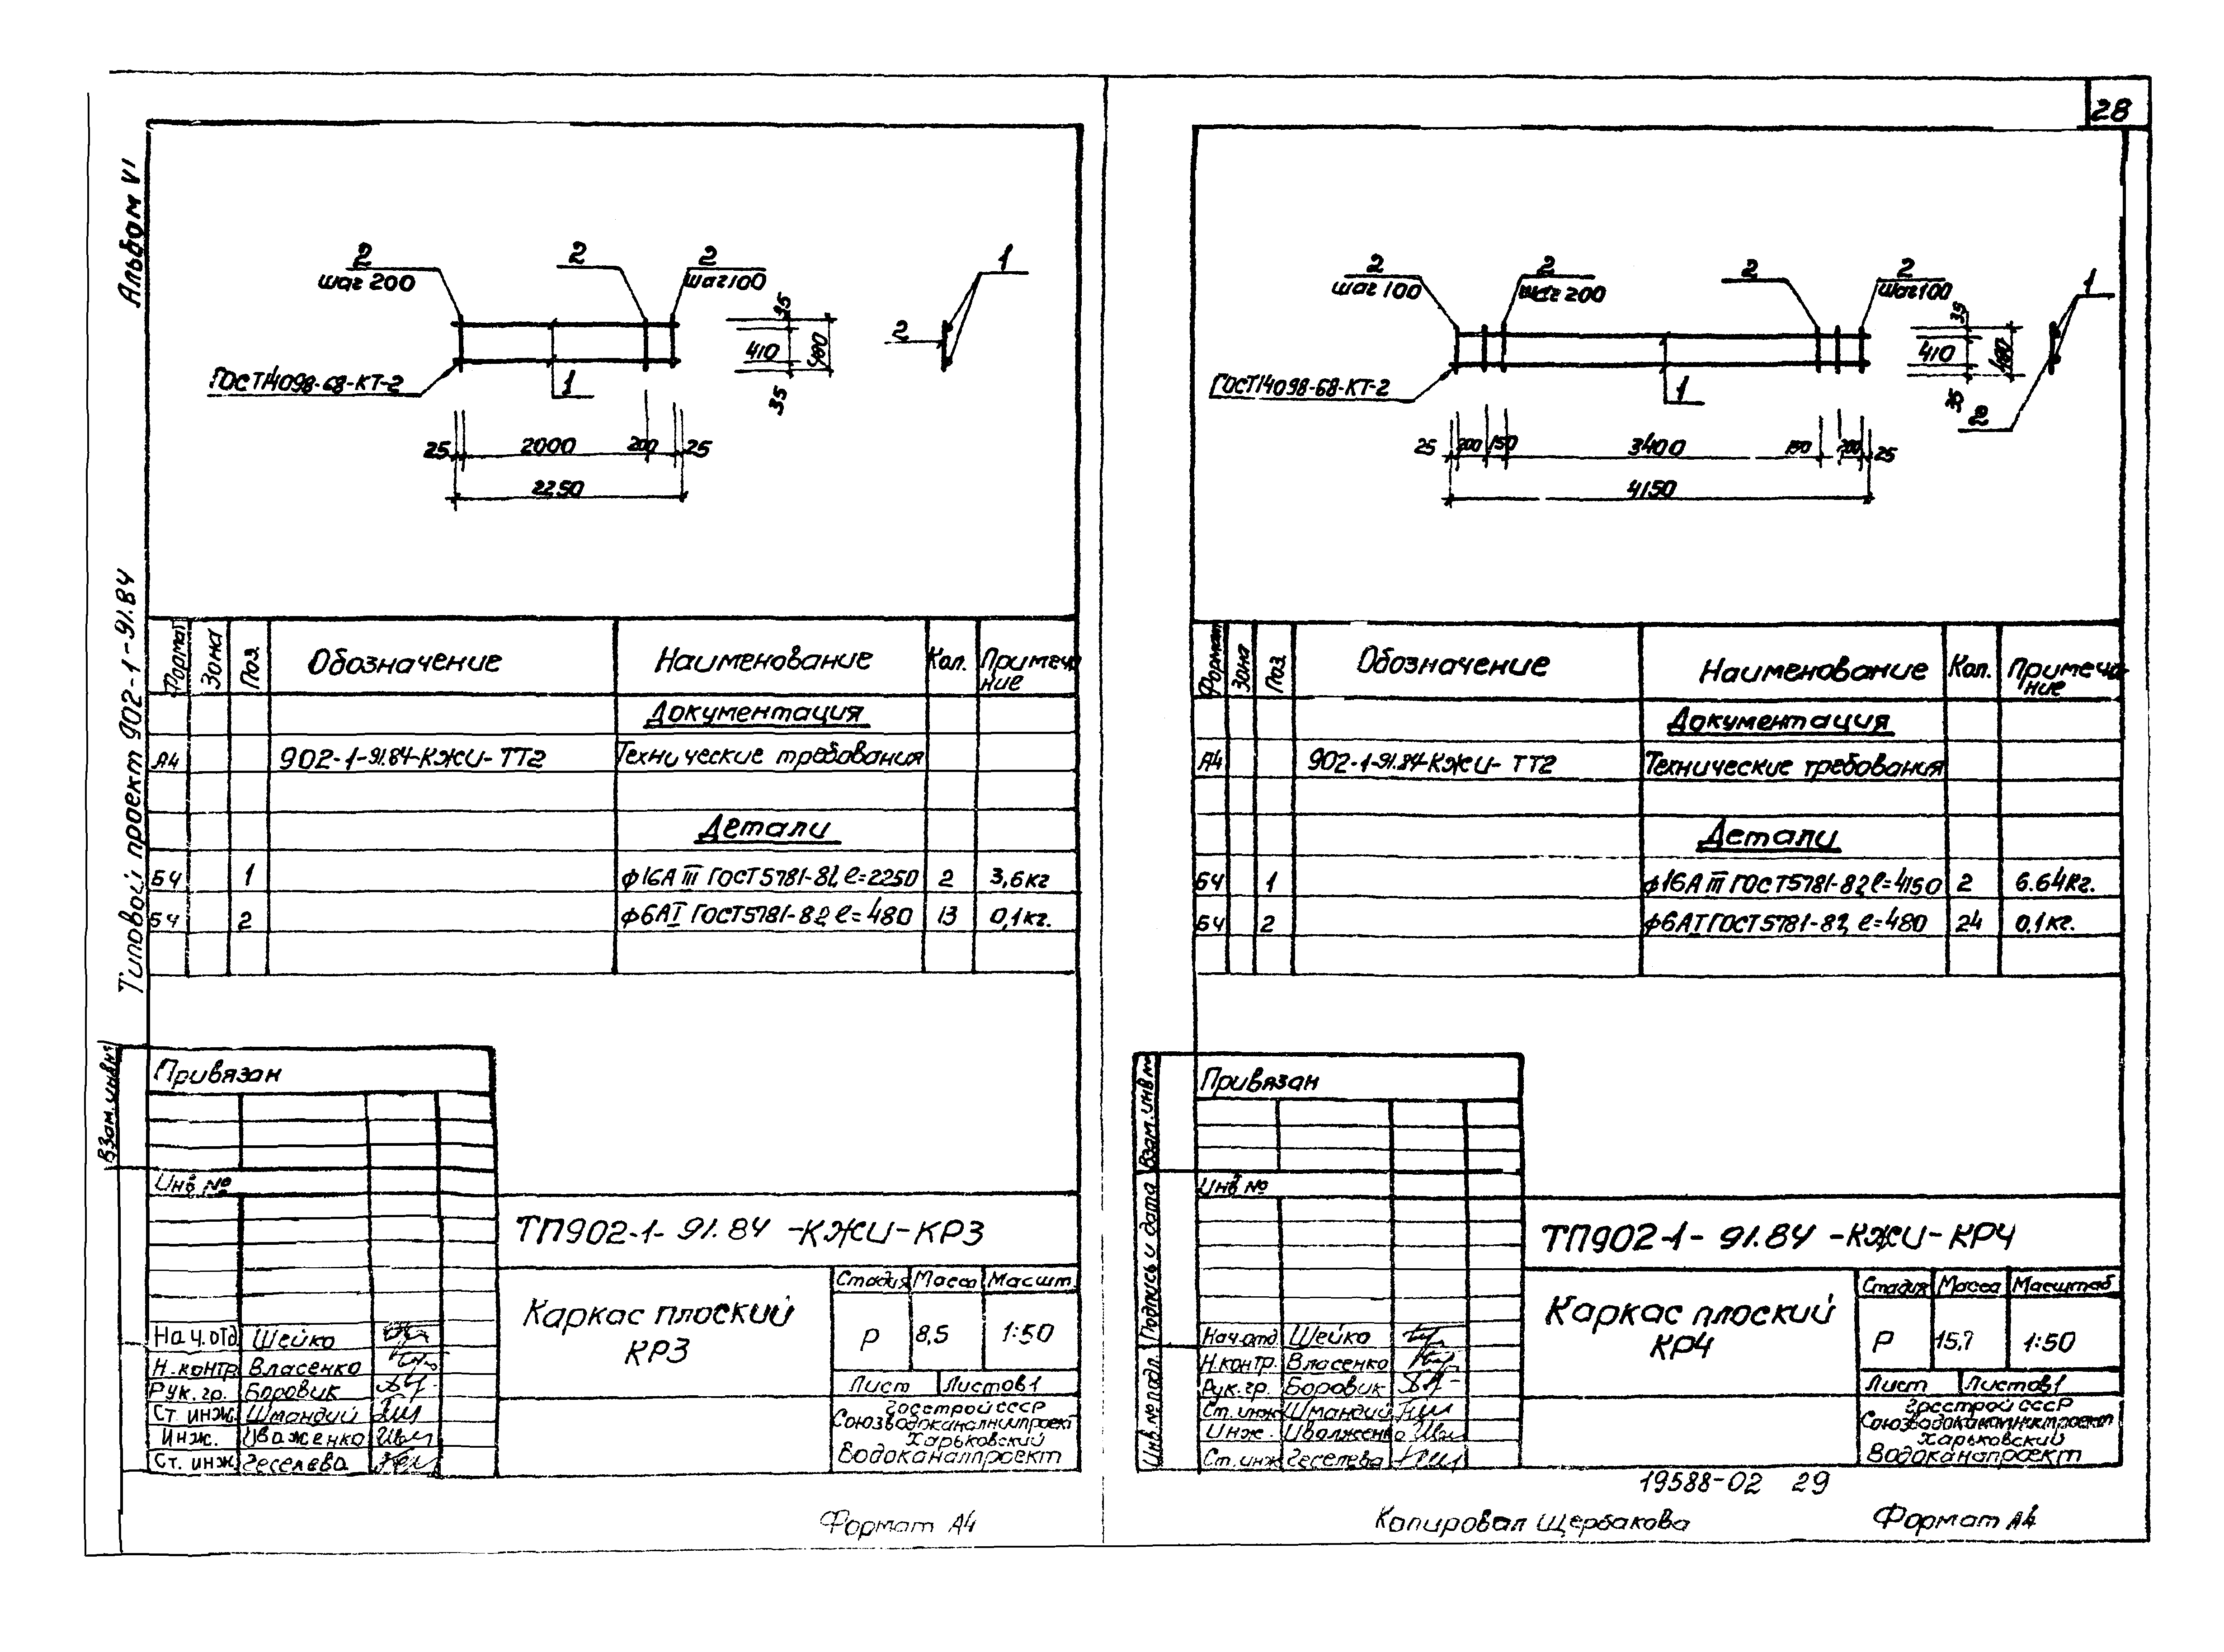 28
Альбом VI
Типовой проект 902-1-91.84
Взам. инв. №
2
шаг 200
2
2
шаг 100
1
2
35
410
480
35
ГОСТ14098-68-КТ-2
1
25
2000
200
25
2250
Формат
Зона
Поз.
Обозначение
Наименование
Кол.
Примеча
ние
Документация
А4
902-1-91.84-КЖИ-ТТ2
Технические требования
Детали
БЧ
1
ф16АIII ГОСТ5781-82, ℓ=2250
2
3,6кг
БЧ
2
ф6АI ГОСТ5781-82, ℓ=480
13
0,1кг.
Привязан
Инв №
ТП902-1-91.84-КЖИ-КР3
Каркас плоский
КР3
Стадия
Масса
Масшт.
Р
8,5
1:50
Лист
Листов 1
Госстрой СССР
Союзводоканалниипроект
Харьковский
Водоканалпроект
Нач.отд Шейко
Н.контр Власенко
Рук.гр. Боровик
Ст. инж. Шмандий
Инж. Иваженко
Ст. инж Геселева
Формат А4
2
шаг 100
2
шаг 200
2
2
шаг 100
1
2
35
410
480
35
ГОСТ14098-68-КТ-2
1
25
200
150
3400
150
200
25
4150
Формат
Зона
Поз.
Обозначение
Наименование
Кол.
Примеча-
ние
Документация
А4
902-1-91.84-КЖИ-ТТ2
Технические требования
Детали
БЧ
1
ф16АIII ГОСТ5781-82, ℓ=4150
2
6.64кг.
БЧ
2
ф6АI ГОСТ5781-82, ℓ=480
24
0,1кг.
Взам. инв №
Подпись и дата
Инв. № подл.
Привязан
Инв №
ТП902-1-91.84-КЖИ-КР4
Каркас плоский
КР4
Стадия
Масса
Масштаб
Р
15,7
1:50
Лист
Листов 1
Госстрой СССР
Союзводоканалниипроект
Харьковский
Водоканалпроект
Нач.отд. Шейко
Н.контр. Власенко
Рук.гр. Боровик
Ст.инж Шмандий
Инж. Иваженко
Ст.инж Геселева
19588-02 29
Копировал Щербакова
Формат А4